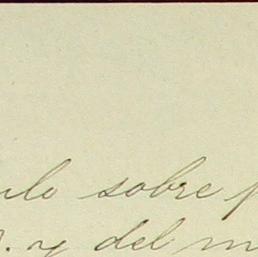 ulo sobre p
. y del m